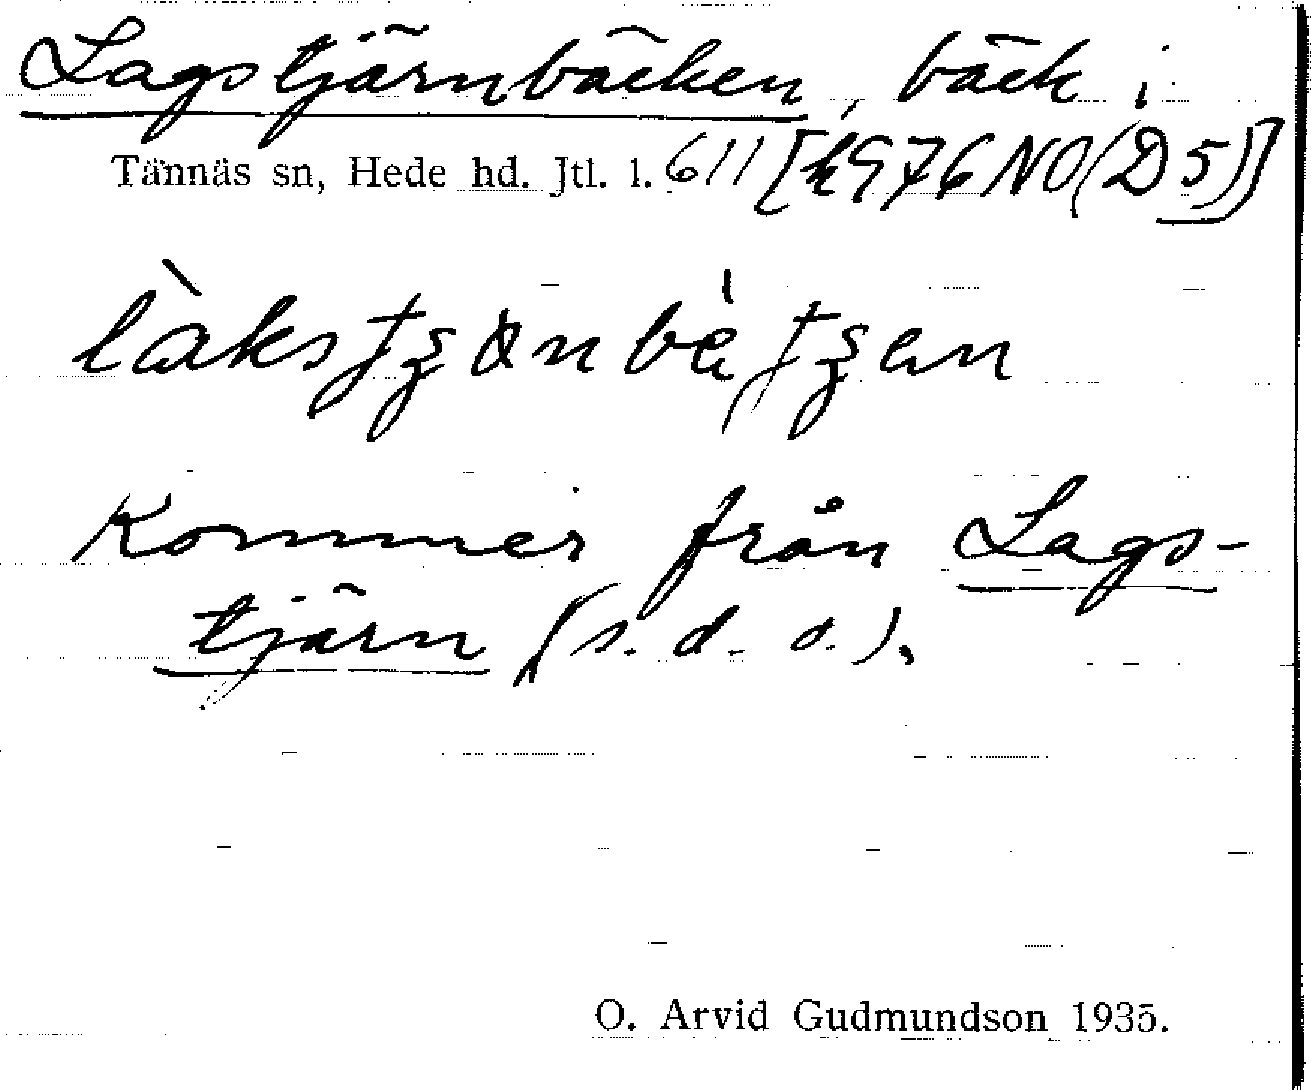 Lagstjärnbäcken, bäck i
Tännäs sn, Hede hd. Jtl. l. 611 [k976NO(D5)]
Kommer från Lags-
tjärn (s. d. o.).
O. Arvid Gudmundson 1935.